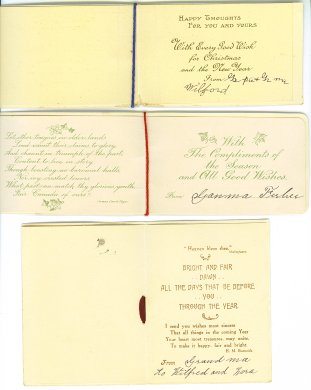 HAPPY THOUGHTS
FOR YOU AND YOURS
With Every Good Wish
for Christmas
and the New Year
From
Wilford
Let others linger in olden lands
And chant in triumph of the past,
Content to live in story.
Though boasting no baronial halls
Nor ivy crested towers
What past can match thy glorious youth,
Fair Canada of ours?
With
The Compliments
of the Season
and All Good Wishes.
From
"Heaven bless thee."
Shakespeare.
BRIGHT AND FAIR
DAWN . .
ALL THE DAYS THAT BE BEFORE
YOU . .
THROUGH THE YEAR.
I send you wishes most sincere
That all things in the coming Year
Your heart most treasures, may unite
To make it happy, fair and bright.
From Grandma
to Wilfred and Zora